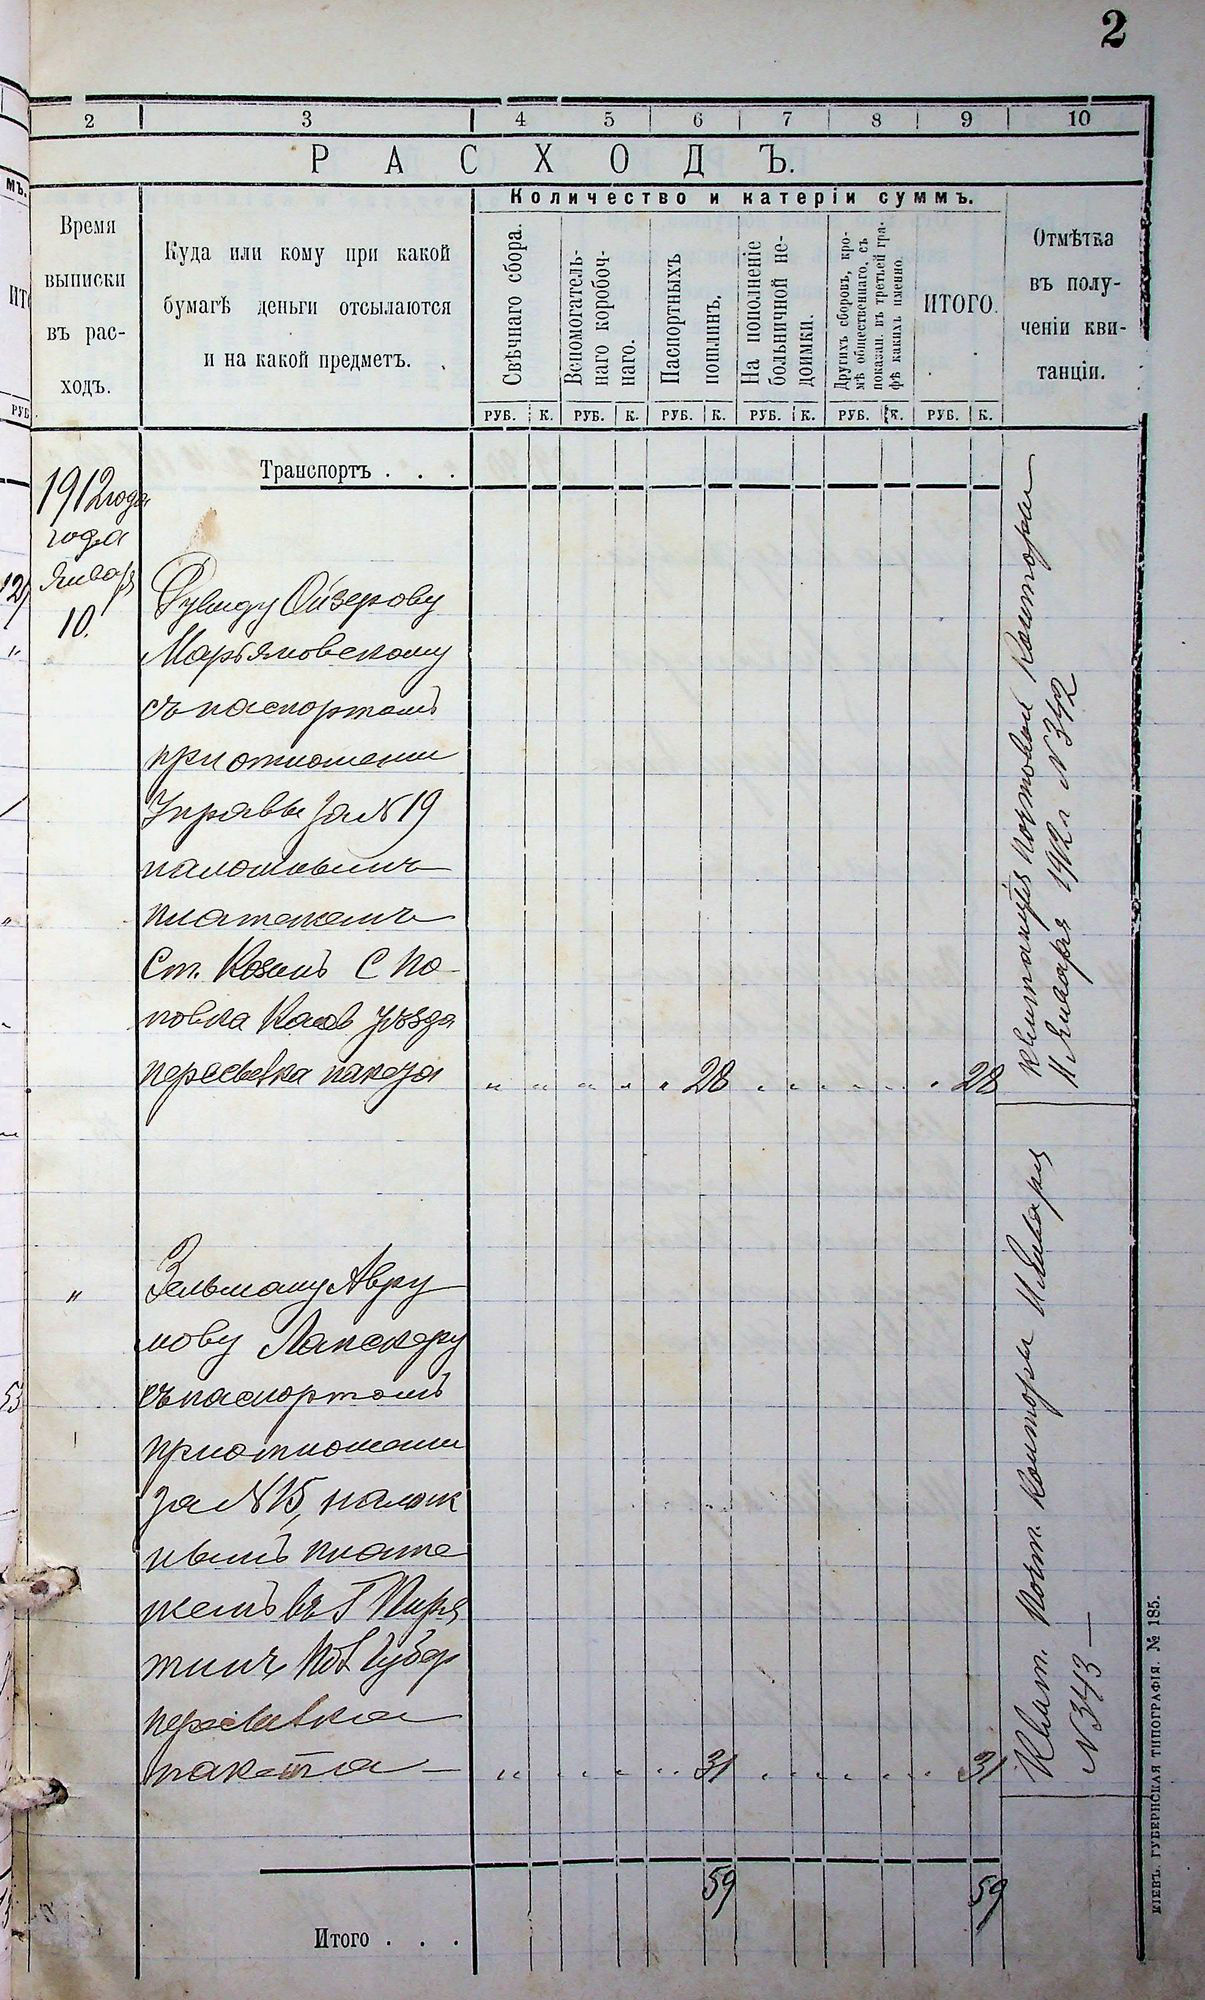 2
2 3 4 5 6 7 8 9 10
РАСХОДЪ.
Время
выписки
въ рас-
ходъ.
Куда или кому при какой
бумагѣ деньги отсылаются
и на какой предметъ.
Количество и катерiи суммъ.
Свѣчнаго сбора.
Вспомогатель-
наго коробоч-
наго.
Паспортныхъ
пошлинъ.
На пополненiе
больничной не-
доимки.
Другихъ сборовъ, кро-
мѣ общественнаго, съ
показан. въ третьей гра-
фѣ какихъ именно.
ИТОГО.
Отмѣтка
въ полу-
ченiи кви-
танцiи.
РУБ. К. РУБ. К. РУБ. К. РУБ. К. РУБ. К. РУБ. К.
Транспортъ . . .
1912 года
года
Января
10.
Рувиду Ойзерову
Марьяновскому
съ паспортомъ
при отношении
Управы за № 19
наложнымъ
платежемъ
Ст. Козинъ С По
повка Канев уѣзда
пересылка пакета
28 28
квитанцiя почтовой конторы
11 Января 1912 г № 342
"
Зельману Авру
мову Лапскеру
съ паспортомъ
при отношении
за № 15, налож
нымъ плате
жемъ въ Г Пиря
тинъ Пол Губер
пересылка
пакета —
31 31
Квит. почт. конторы 11 Января
№ 343 —
59 59
Итого . . .
КIЕВЪ. ГУБЕРНСКАЯ ТИПОГРАФIЯ. № 185.